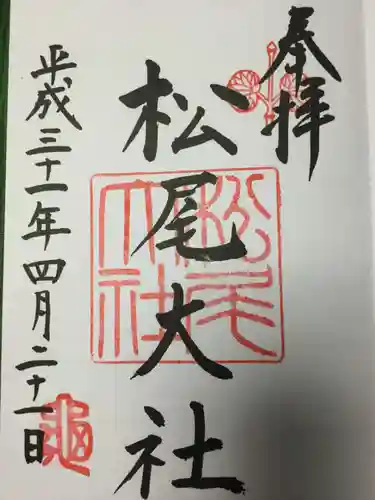 奉拝
松尾大社
平成三十一年四月二十一日
松尾大社
亀